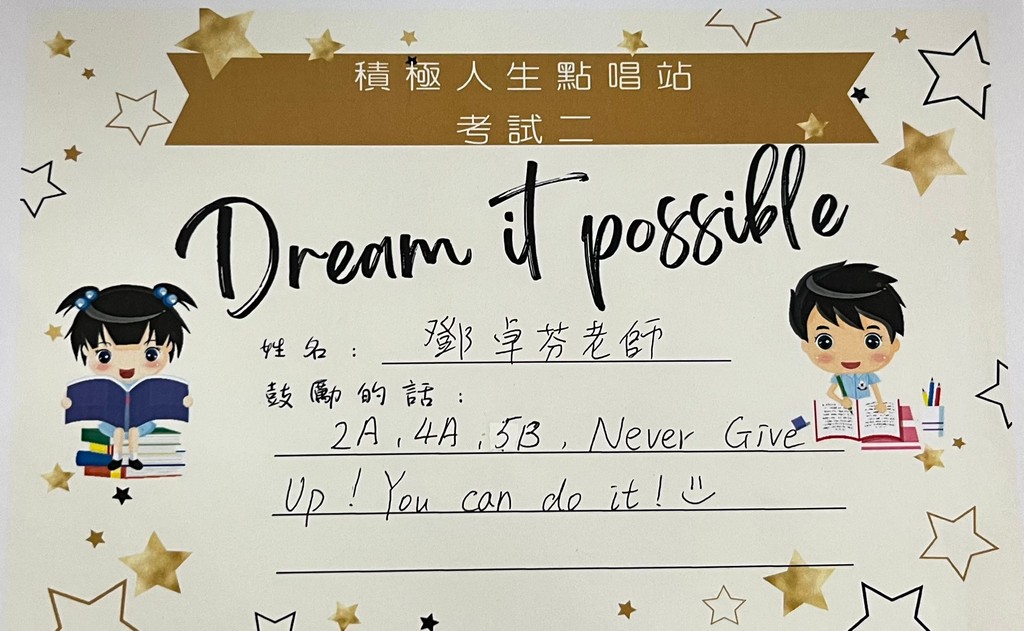 積極人生點唱站
考試二
Dream it possible
姓名：鄧卓芬老師
鼓勵的話：
2A, 4A, 5B, Never Give
Up! You can do it! :)